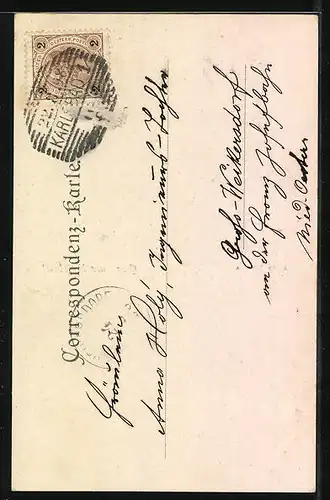 2 2
KARLSBAD
Correspondenz-Karte
Fräulein
Anna Holý, Ingenieurs-Tochter
Groß-Weikersdorf
an der Franz Josefsbahn
Nied. Oester.